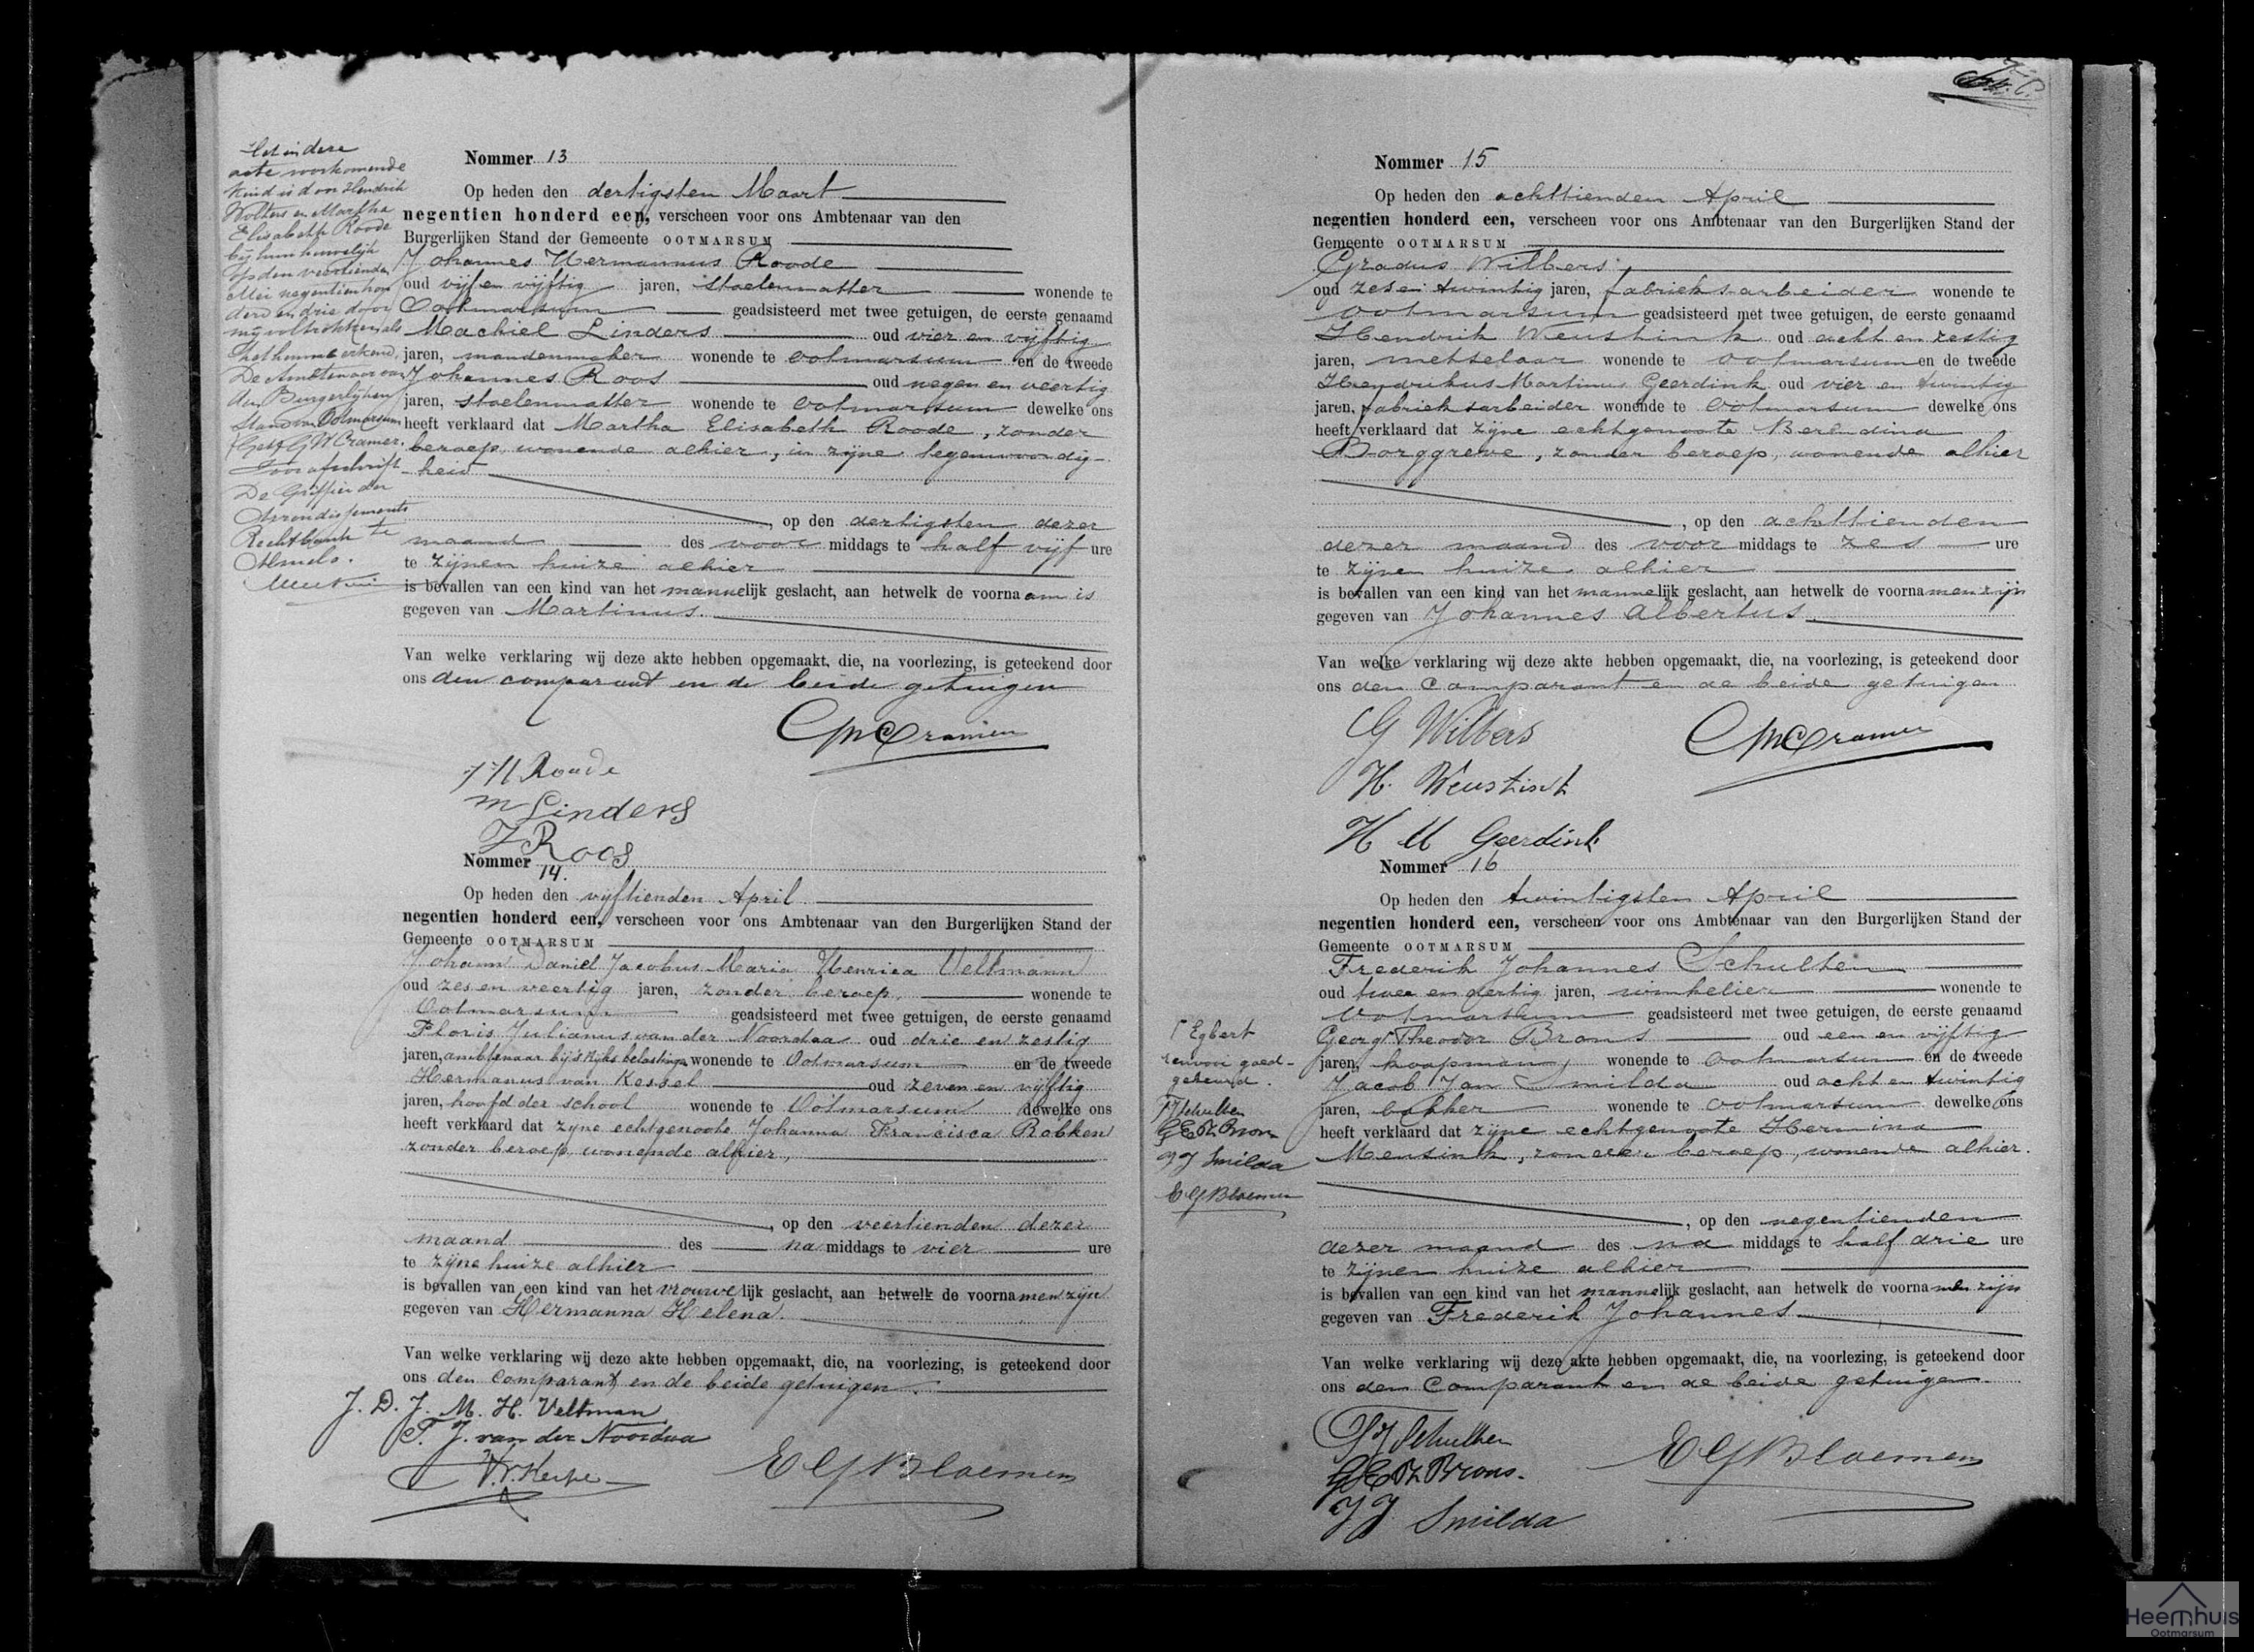 Het in deze
acte voorkomende
kind is door Hendrik
Wolters en Martha
Elisabeth Roode
bij hun huwelijk
op den veertienden
Mei negentien hon
derd en drie door
mij voltrokken als
het hunne erkend,
De Ambtenaar van
den Burgerlijken
Stand van Ootmarsum
(Get) G W Cramer.
Voor afschrift
De Griffier der
Arrondissements
Rechtbank te
Almelo.
Nommer 13
Op heden den dertigsten Maart
negentien honderd een, verscheen voor ons Ambtenaar van den
Burgerlijken Stand der Gemeente OOTMARSUM
Johannes Hermannus Roode
oud vijf en vijftig jaren, stoelenmatter wonende te
Ootmarsum geadsisteerd met twee getuigen, de eerste genaamd
Machiel Linders oud vier en vijftig
jaren, mandenmaker wonende te Ootmarsum en de tweede
Johannes Roos oud negen en veertig
jaren, stoelenmatter wonende te Ootmarsum dewelke ons
heeft verklaard dat Martha Elisabeth Roode, zonder
beroep, wonende alhier, in zijne tegenwoordig-
heid
, op den dertigsten dezer
maand des voor middags te half vijf ure
te zijnen huize alhier
is bevallen van een kind van het mannelijk geslacht, aan hetwelk de voornaam is
gegeven van Martinus.
Van welke verklaring wij deze akte hebben opgemaakt, die, na voorlezing, is geteekend door
ons den comparant en de beide getuigen
GWCramer
J H Roode
M Linders
J Roos
Nommer 14.
Op heden den vijftienden April
negentien honderd een, verscheen voor ons Ambtenaar van den Burgerlijken Stand der
Gemeente OOTMARSUM
Johann Daniel Jacobus Maria Henrica Veltmann
oud zes en veertig jaren, zonder beroep, wonende te
Ootmarsum geadsisteerd met twee getuigen, de eerste genaamd
Floris Julianus van der Noordaa oud drie en zestig
jaren, ambtenaar bij 's Rijks belasting wonende te Ootmarsum en de tweede
Hermanus van Kessel oud zeven en vijftig
jaren, hoofd der school wonende te Ootmarsum dewelke ons
heeft verklaard dat zijne echtgenoote Johanna Francisca Robken
zonder beroep, wonende alhier,
, op den veertienden dezer
maand des na middags te vier ure
te zijne huize alhier
is bevallen van een kind van het vrouwelijk geslacht, aan hetwelk de voornamen zijn
gegeven van Hermanna Helena.
Van welke verklaring wij deze akte hebben opgemaakt, die, na voorlezing, is geteekend door
ons den Comparant en de beide getuigen.
J. D. J. M. H. Veltman
F. J. van der Noordaa
E G Bloemen
Nommer 15
Op heden den achttienden April
negentien honderd een, verscheen voor ons Ambtenaar van den Burgerlijken Stand der
Gemeente OOTMARSUM
Gradus Wilbers
oud zes en twintig jaren, fabrieksarbeider wonende te
Ootmarsum geadsisteerd met twee getuigen, de eerste genaamd
Hendrik Weustink oud acht en zestig
jaren, metselaar wonende te Ootmarsum en de tweede
Hendrikus Martinus Geerdink oud vier en twintig
jaren, fabrieksarbeider wonende te Ootmarsum dewelke ons
heeft verklaard dat zijne echtgenoote Berendina
Borggreve, zonder beroep, wonende alhier
, op den achttienden
dezer maand des voor middags te zes ure
te zijnen huize alhier
is bevallen van een kind van het mannelijk geslacht, aan hetwelk de voornamen zijn
gegeven van Johannes Albertus.
Van welke verklaring wij deze akte hebben opgemaakt, die, na voorlezing, is geteekend door
ons den Comparant en de beide getuigen
G Wilbers
GWCramer
H. Weustink
H M Geerdink
Nommer 16
Op heden den twintigsten April
negentien honderd een, verscheen voor ons Ambtenaar van den Burgerlijken Stand der
Gemeente OOTMARSUM
Frederik Johannes Schulten
oud twee en dertig jaren, winkelier wonende te
Ootmarsum geadsisteerd met twee getuigen, de eerste genaamd
Georg Theodor Brons oud een en vijftig
jaren, koopman, wonende te Ootmarsum en de tweede
Jacob Jan Smilda oud acht en twintig
jaren, bakker wonende te Ootmarsum dewelke ons
heeft verklaard dat zijne echtgenoote Hermina
Mensink, zonder beroep, wonende alhier.
, op den negentienden
dezer maand des na middags te half drie ure
te zijnen huize alhier
is bevallen van een kind van het mannelijk geslacht, aan hetwelk de voornamen zijn
gegeven van Frederik Johannes
Van welke verklaring wij deze akte hebben opgemaakt, die, na voorlezing, is geteekend door
ons den Comparant en de beide getuigen.
Egbert
renvooi goed-
gekeurd.
FJ Schulten
GETh Brons
JJ Smilda
E G Bloemen
FJ Schulten
GETh Brons.
JJ Smilda
E G Bloemen
Heemhuis
Ootmarsum